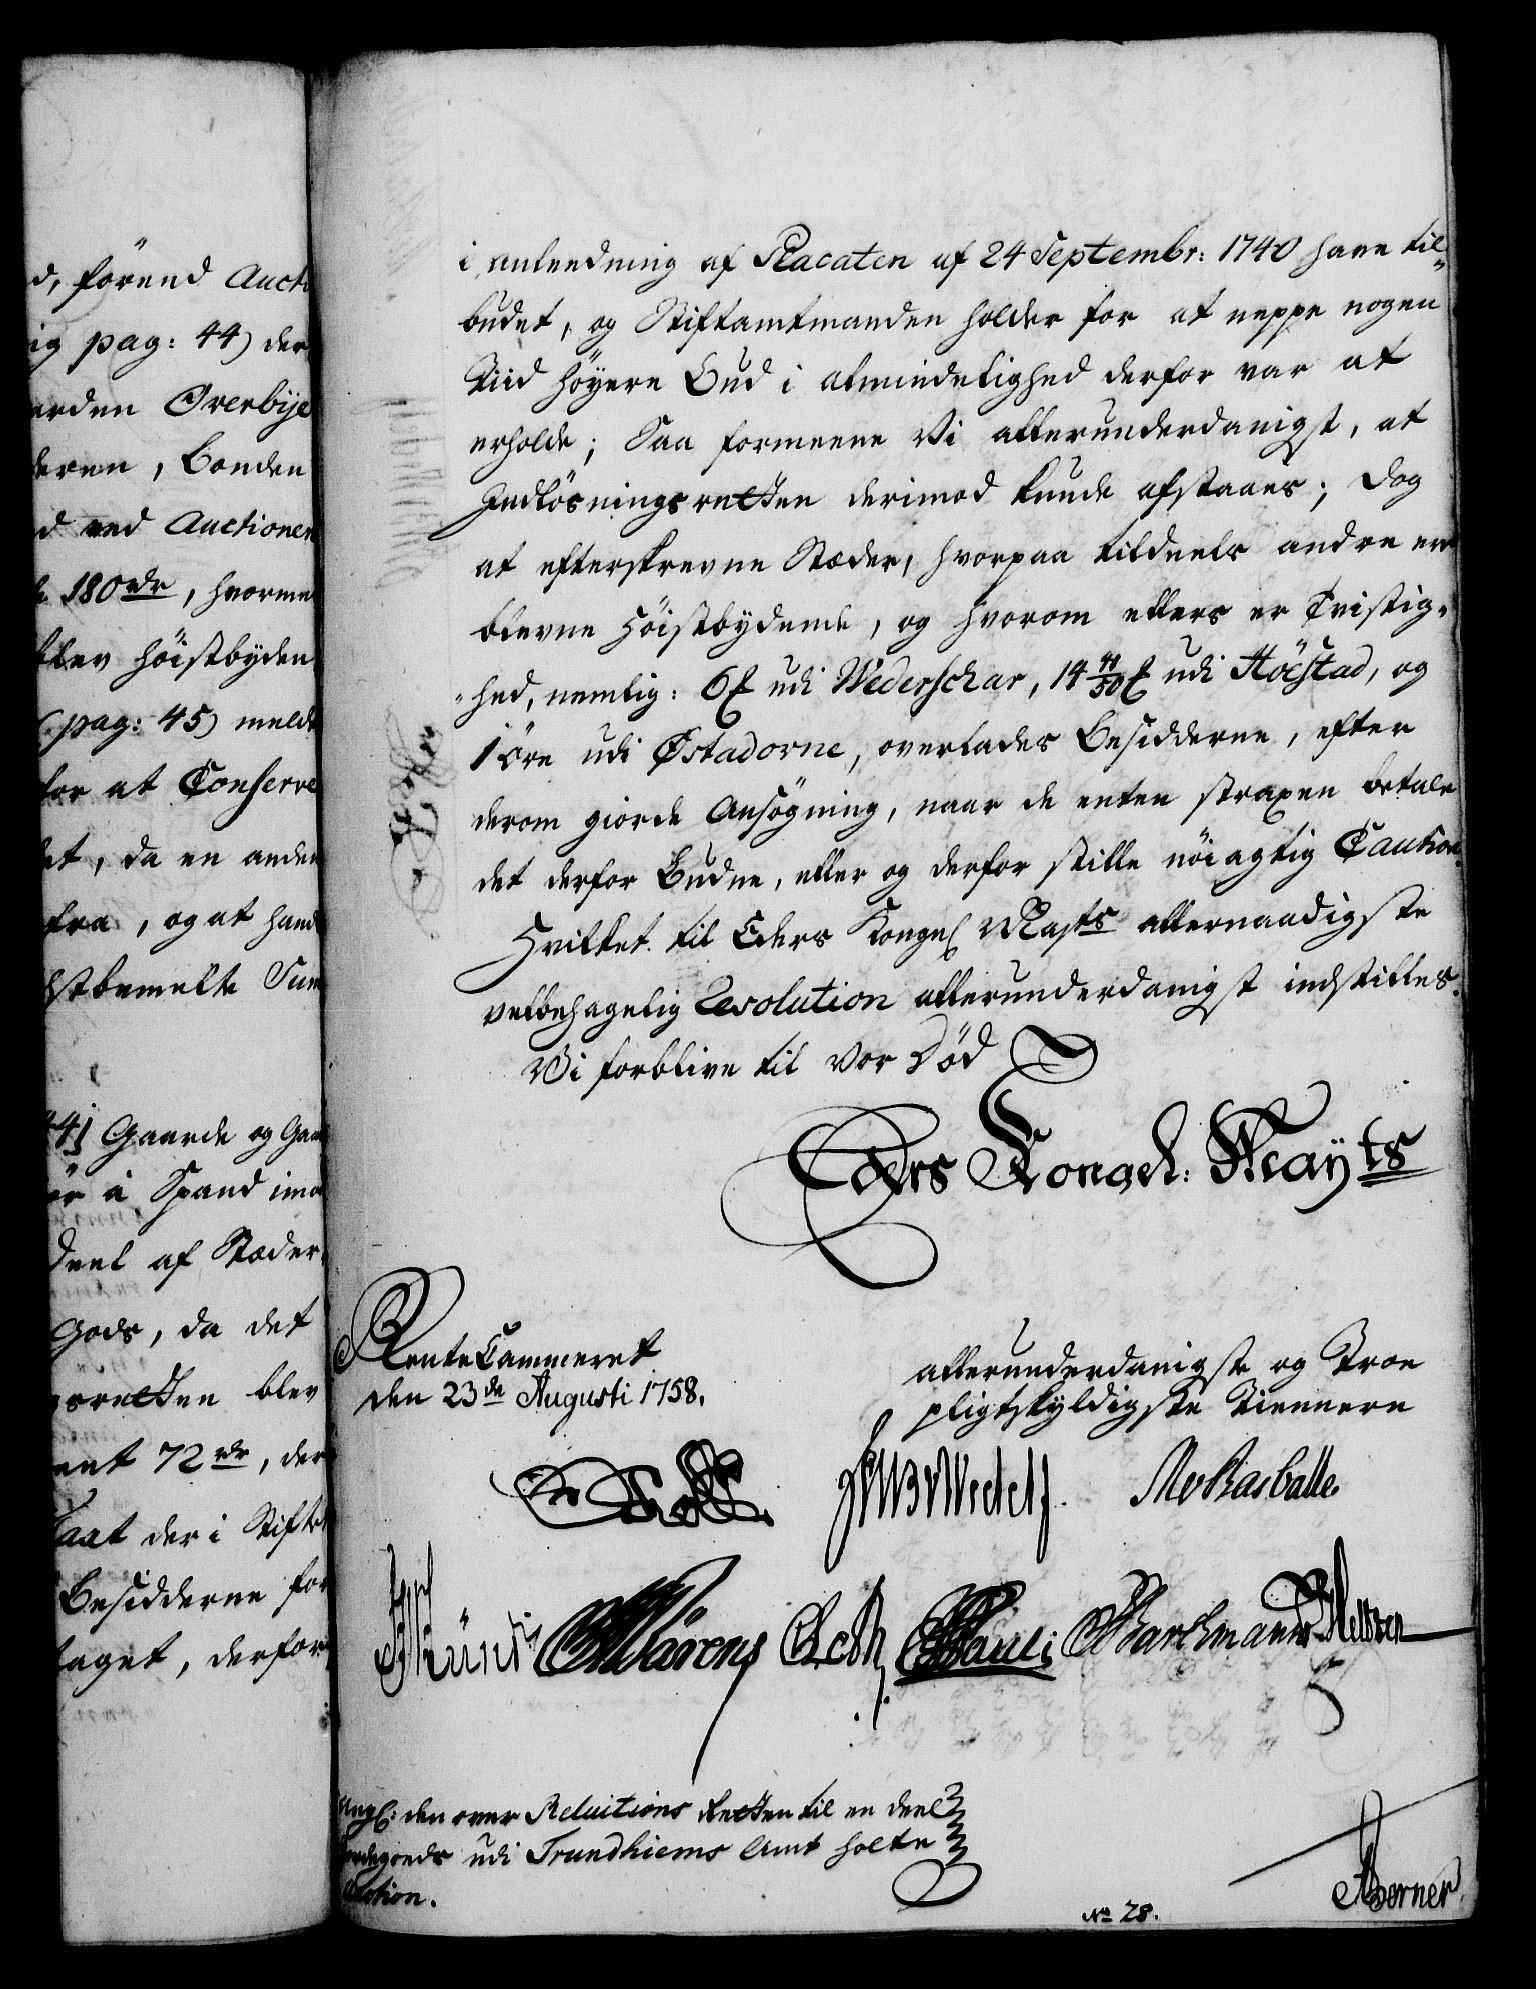 d, førend Aucti
ig pag: 44) der
erden Øverbÿe
deren, Bonden
d ved Auctionen
180 rdr, hvorme
blev høistbÿden
(pag: 45) meld
for at Conserve
et, da en anden
fra, og at hand
stbemelte Sum
44] Gaarde og Gaa
ör â Spand imo
Deel af Stæder
Gods, da det
gsretten blev
ent 72 rdr, der
taat der i Stift
Besidderne for
taget, derfor
i anleedning af Placaten af 24 Septembr: 1740 have til„
budet, og Stiftamtmanden holder for at neppe nogen
Tiid høyere Bud i almindelighed derfor var at
erholde; Saa formeene Vi allerunderdanigst, at
Indløsningsretten derimod kunde afstaaes; dog
at efterskrevne Stæder, hvorpaa tildeels andre ere
blevne Høistbÿdende, og hvorom ellers er Tvistig„
„hed, nemlig: 6 ℔ udi Wederschar, 14 41/50 ℔ udi Höÿstad, og
1 öre udi Østadorne, overlades Besidderne, efter
derom giorde Ansøgning, naar de enten straxen betale
det derfor Budne, eller og derfor stille nöiagtig Caution.
Hvilket til Eders Kongel Mayts allernaadigste
velbehagelig Resolution allerunderdanigst indstilles.
Vi forblive til Vor Død
Eders Kongel: Mayts
RenteCammeret
den 23de Augusti 1758.
allerunderdanigste og Troe
pligtskÿldigste Tiennere
Holck
Wedel
M v Rasballe
Künd
Wärens
Pauli
Barchmand
Angl: den over Reluitions Retten til en deel
Jordegoeds udi Trundhiems Amt holte
Auction.
No 28.
Berner